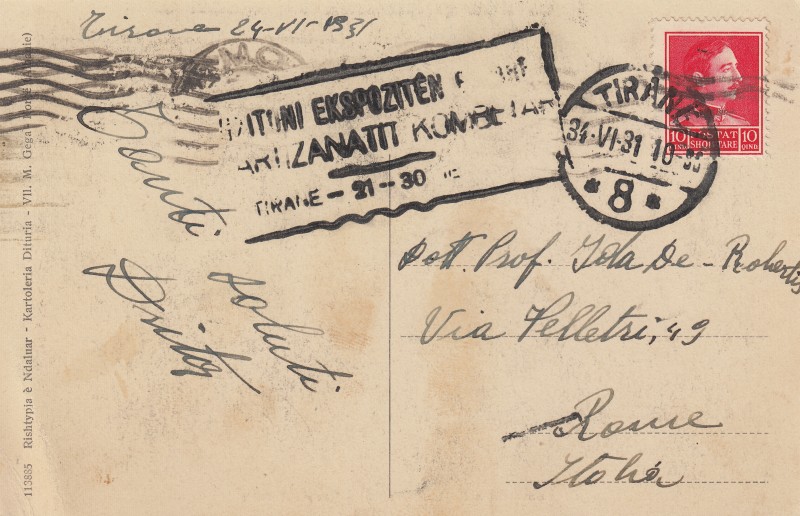 Tirana 24-VI-1931
EKSPOZITËN
ARTIZANATIT KOMBËTAR
TIRANE - 21 - 30
TIRANË
-VI-31 10-
* 8 *
10 POSTAT 10
QIND SHQIPTARE QIND
Tanti saluti
Dott. Prof. Ida De-Robertis
Via Velletri, 49
Roma
Italia
113885 Rishtypja è Ndaluar - Kartoleria Dituria - Vll. M. Gega, Tiranë (Albanie)